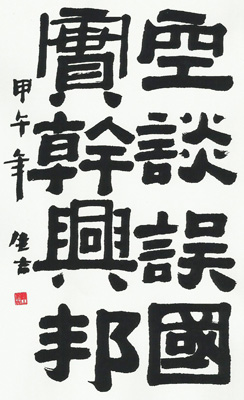 空談誤國
實幹興邦
甲午年